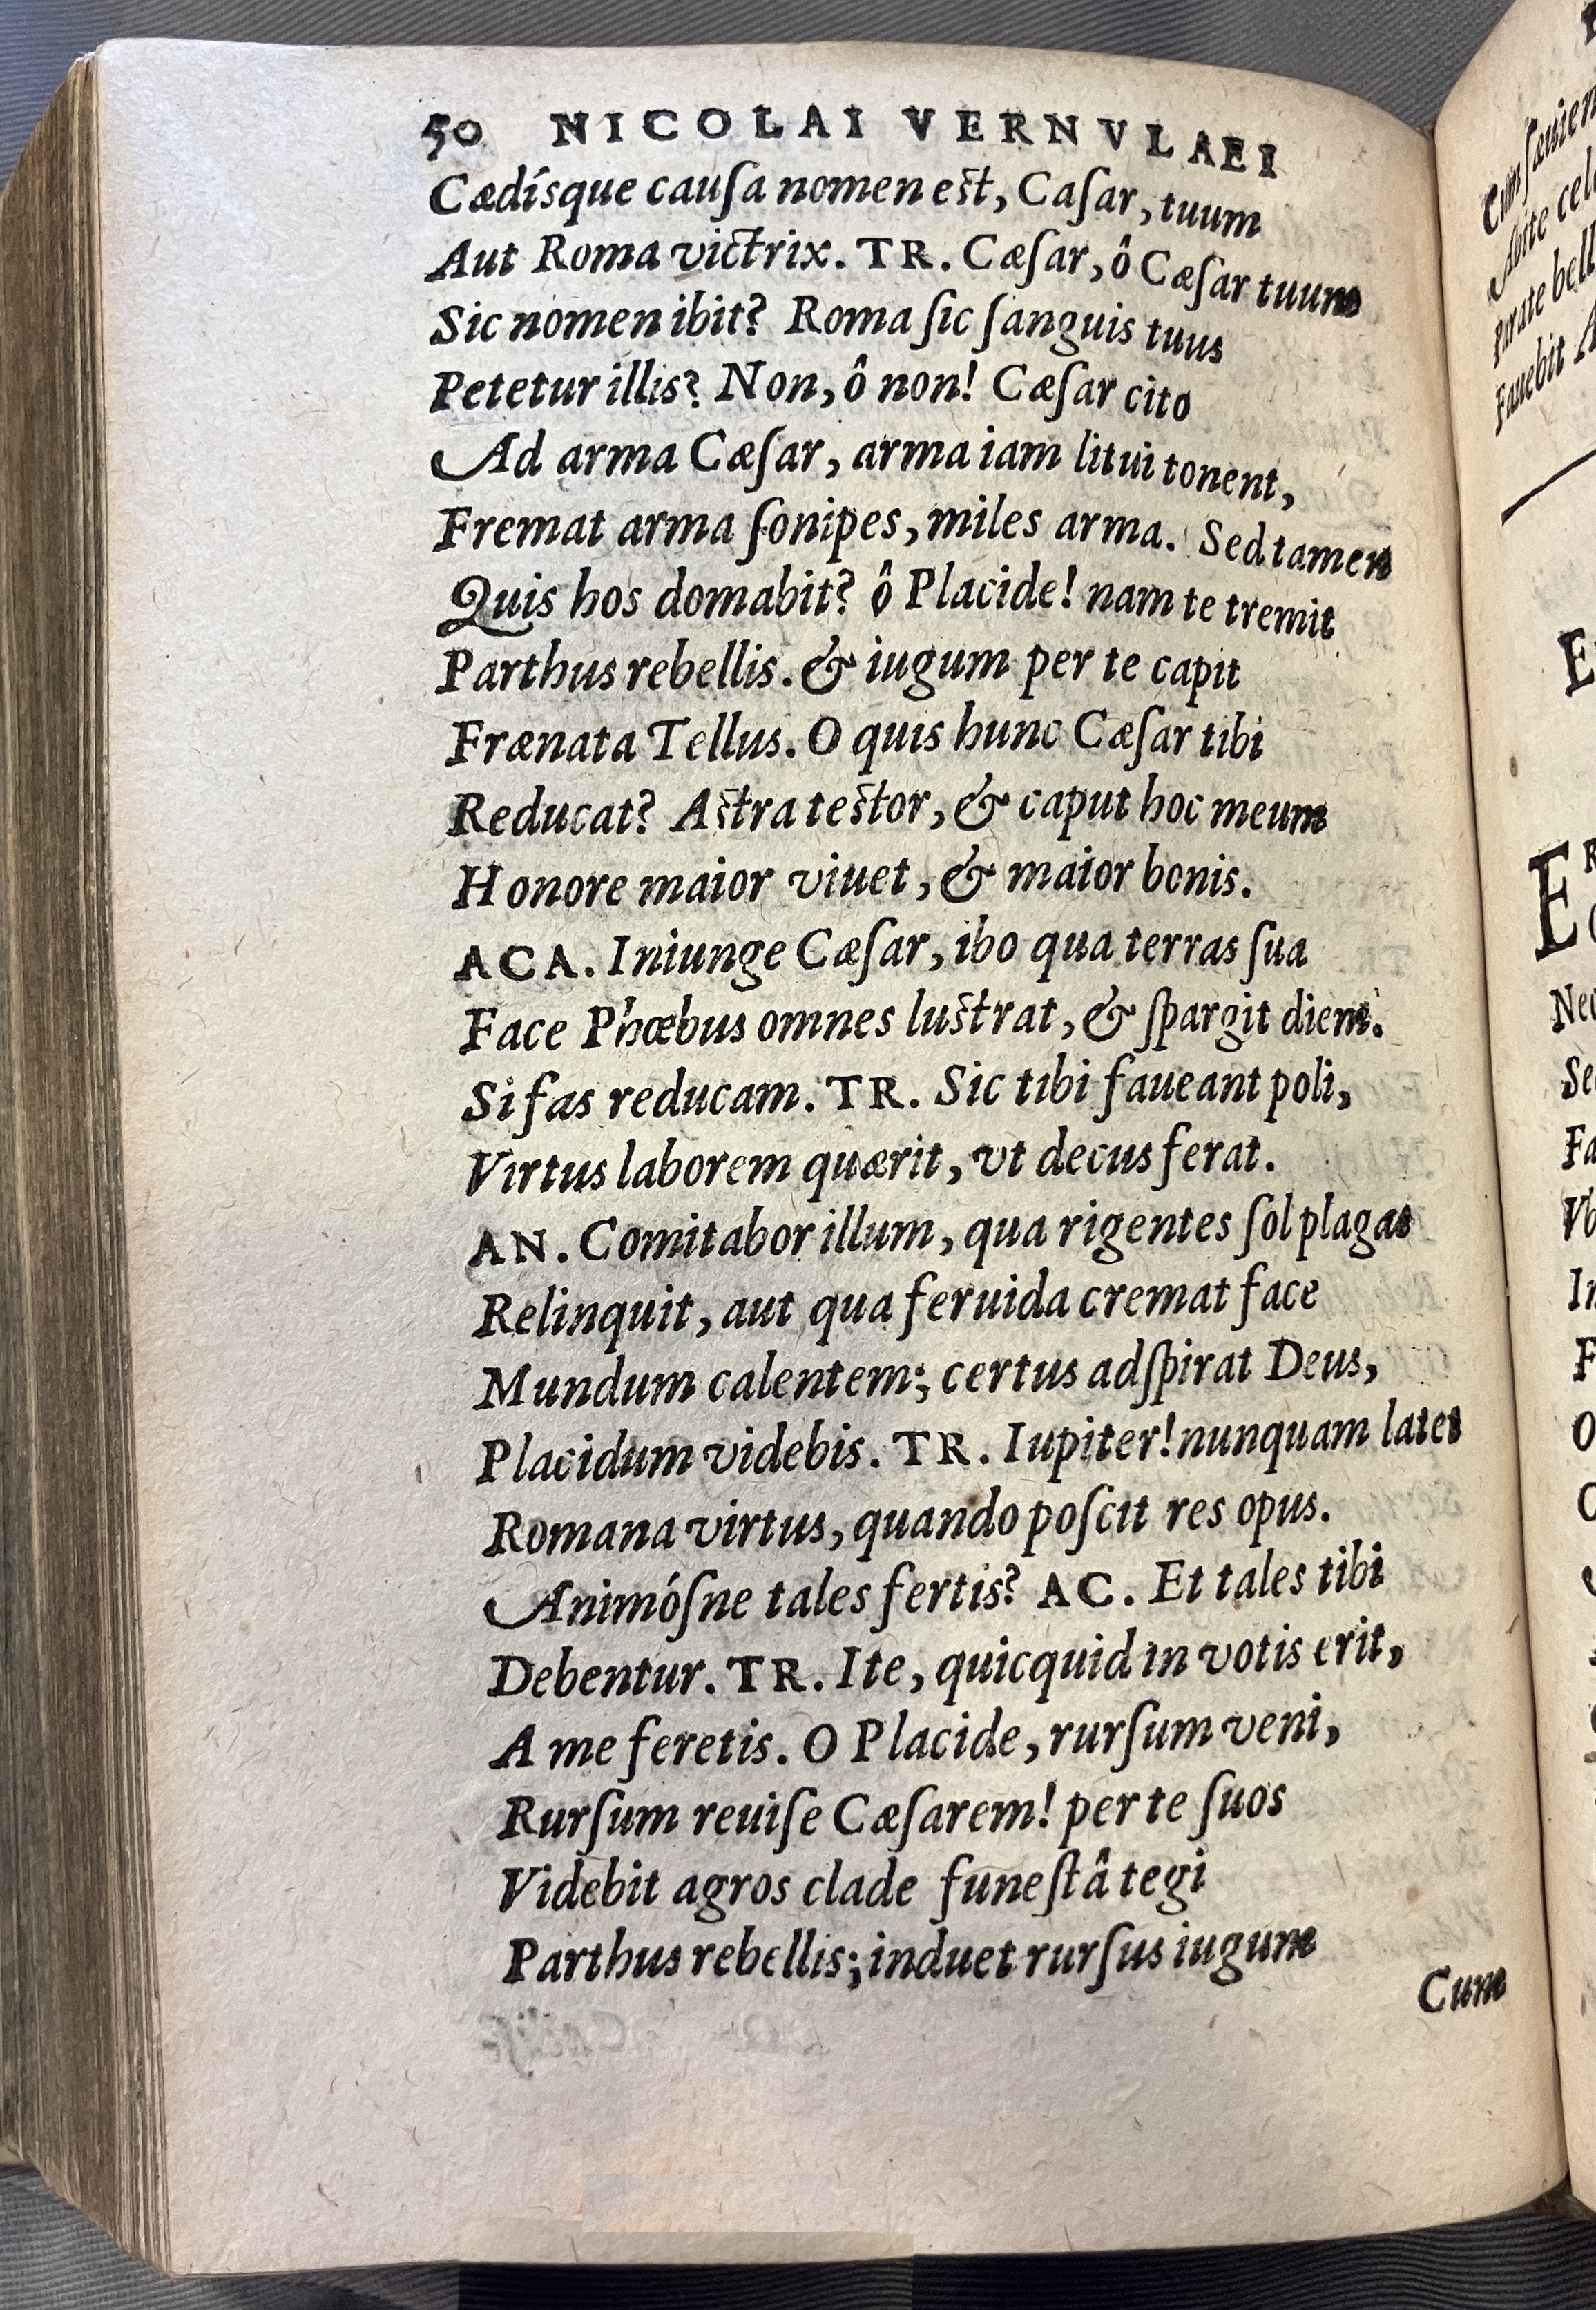 50 NICOLAI VERNVLAEI
Cædísque cauſa nomen eſt, Caſar, tuum
Aut Roma victrix. TR. Cæſar, ô Cæſar tuum
Sic nomen ibit? Roma ſic ſanguis tuus
Petetur illis? Non, ô non! Cæſar cito
Ad arma Cæſar, arma iam litui tonent,
Fremat arma ſonipes, miles arma. Sed tamen
Quis hos domabit? ô Placide! nam te tremit
Parthus rebellis. & iugum per te capit
Frænata Tellus. O quis hunc Cæſar tibi
Reducat? Aſtra teſtor, & caput hoc meum
Honore maior viuet, & maior bonis.
ACA. Iniunge Cæſar, ibo qua terras ſua
Face Phœbus omnes luſtrat, & ſpargit diem.
Si fas reducam. TR. Sic tibi faueant poli,
Virtus laborem quærit, vt decus ferat.
AN. Comitabor illum, qua rigentes ſol plagas
Relinquit, aut qua feruida cremat face
Mundum calentem; certus adſpirat Deus,
Placidum videbis. TR. Iupiter! nunquam latet
Romana virtus, quando poſcit res opus.
Animóſne tales fertis? AC. Et tales tibi
Debentur. TR. Ite, quicquid in votis erit,
A me feretis. O Placide, rurſum veni,
Rurſum reuiſe Cæſarem! per te ſuos
Videbit agros clade funeſtâ tegi
Parthus rebellis; induet rurſus iugum
Cum